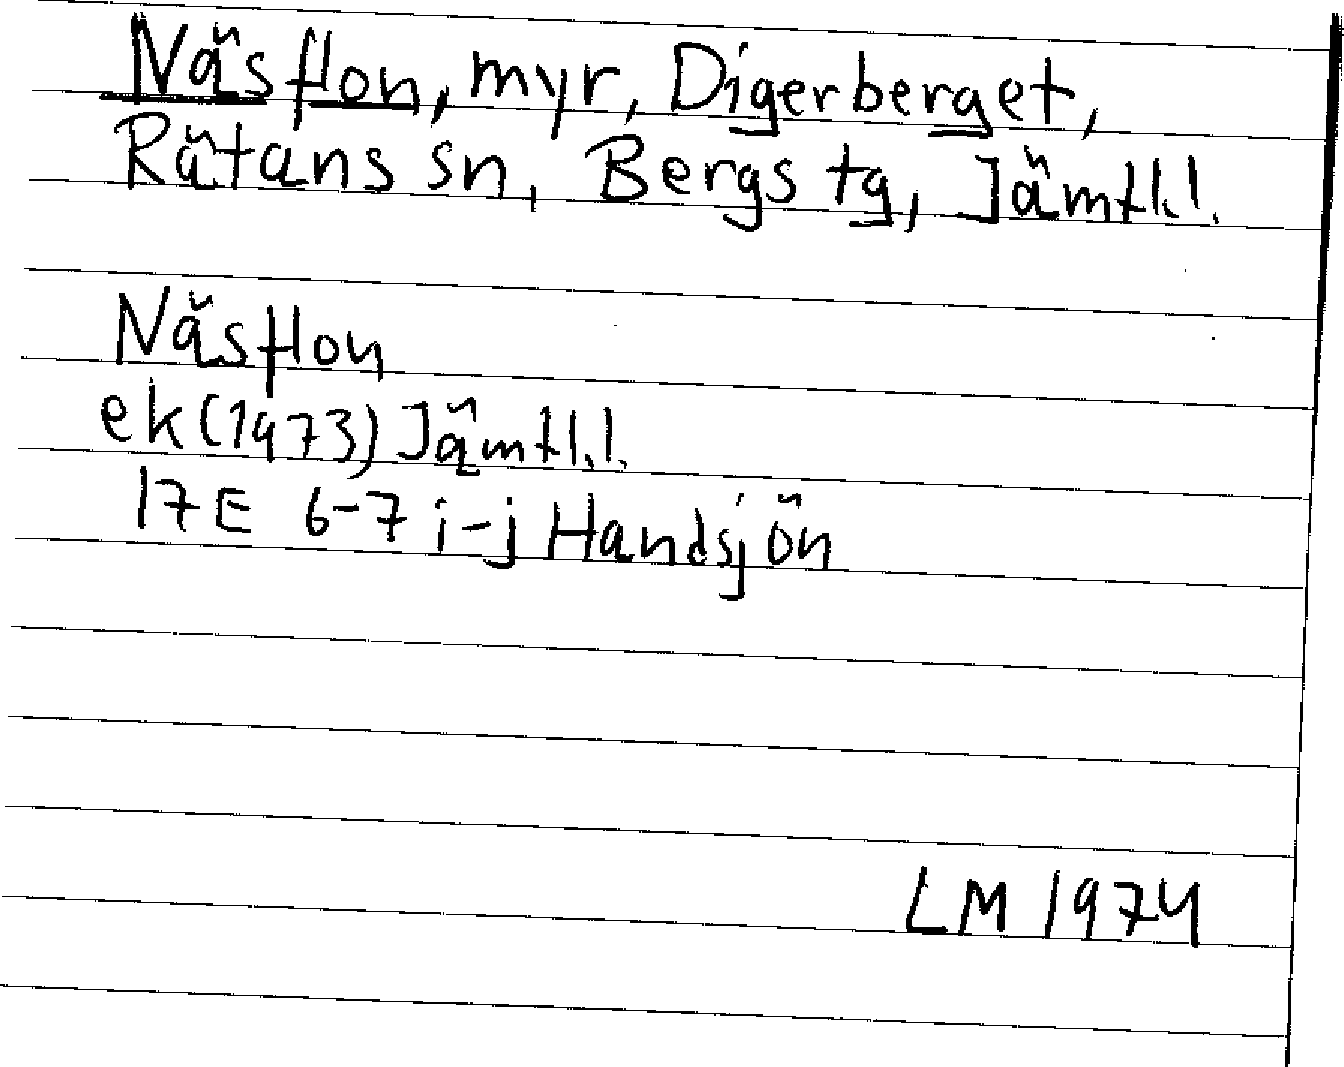 Näsflon, myr, Digerberget,
Rätans sn, Bergs tg, Jämtl.l.
Näsflon
ek (1973) Jämtl.l.
17E 6-7 i-j Handsjön
LM 1974